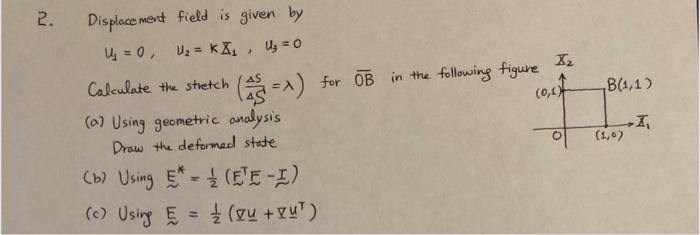 2. Displacement field is given by
U₁ = 0, U₂ = K X₁, U₃ = 0
Calculate the stretch (ΔS/ΔS = λ) for OB in the following figure
X₂
(0,1)
B(1,1)
X₁
O
(1,0)
(a) Using geometric analysis
Draw the deformed state
(b) Using E* = ½ (FᵀF - I)
(c) Using E = ½ (∇u + ∇uᵀ)